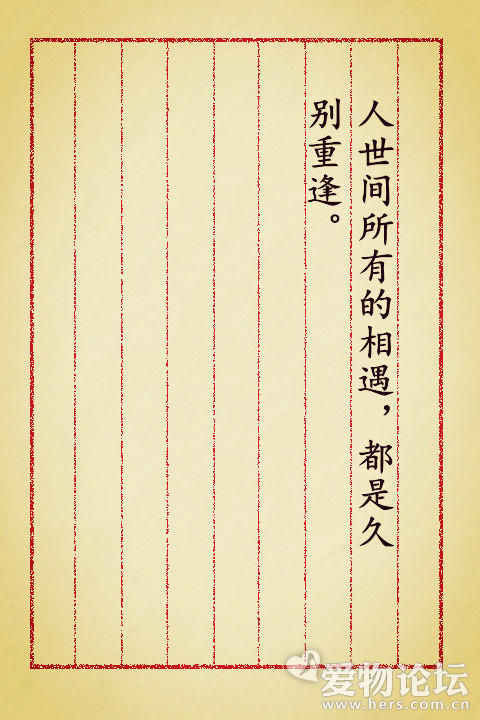 人世间所有的相遇，都是久
别重逢。
爱物论坛
www.hers.com.cn